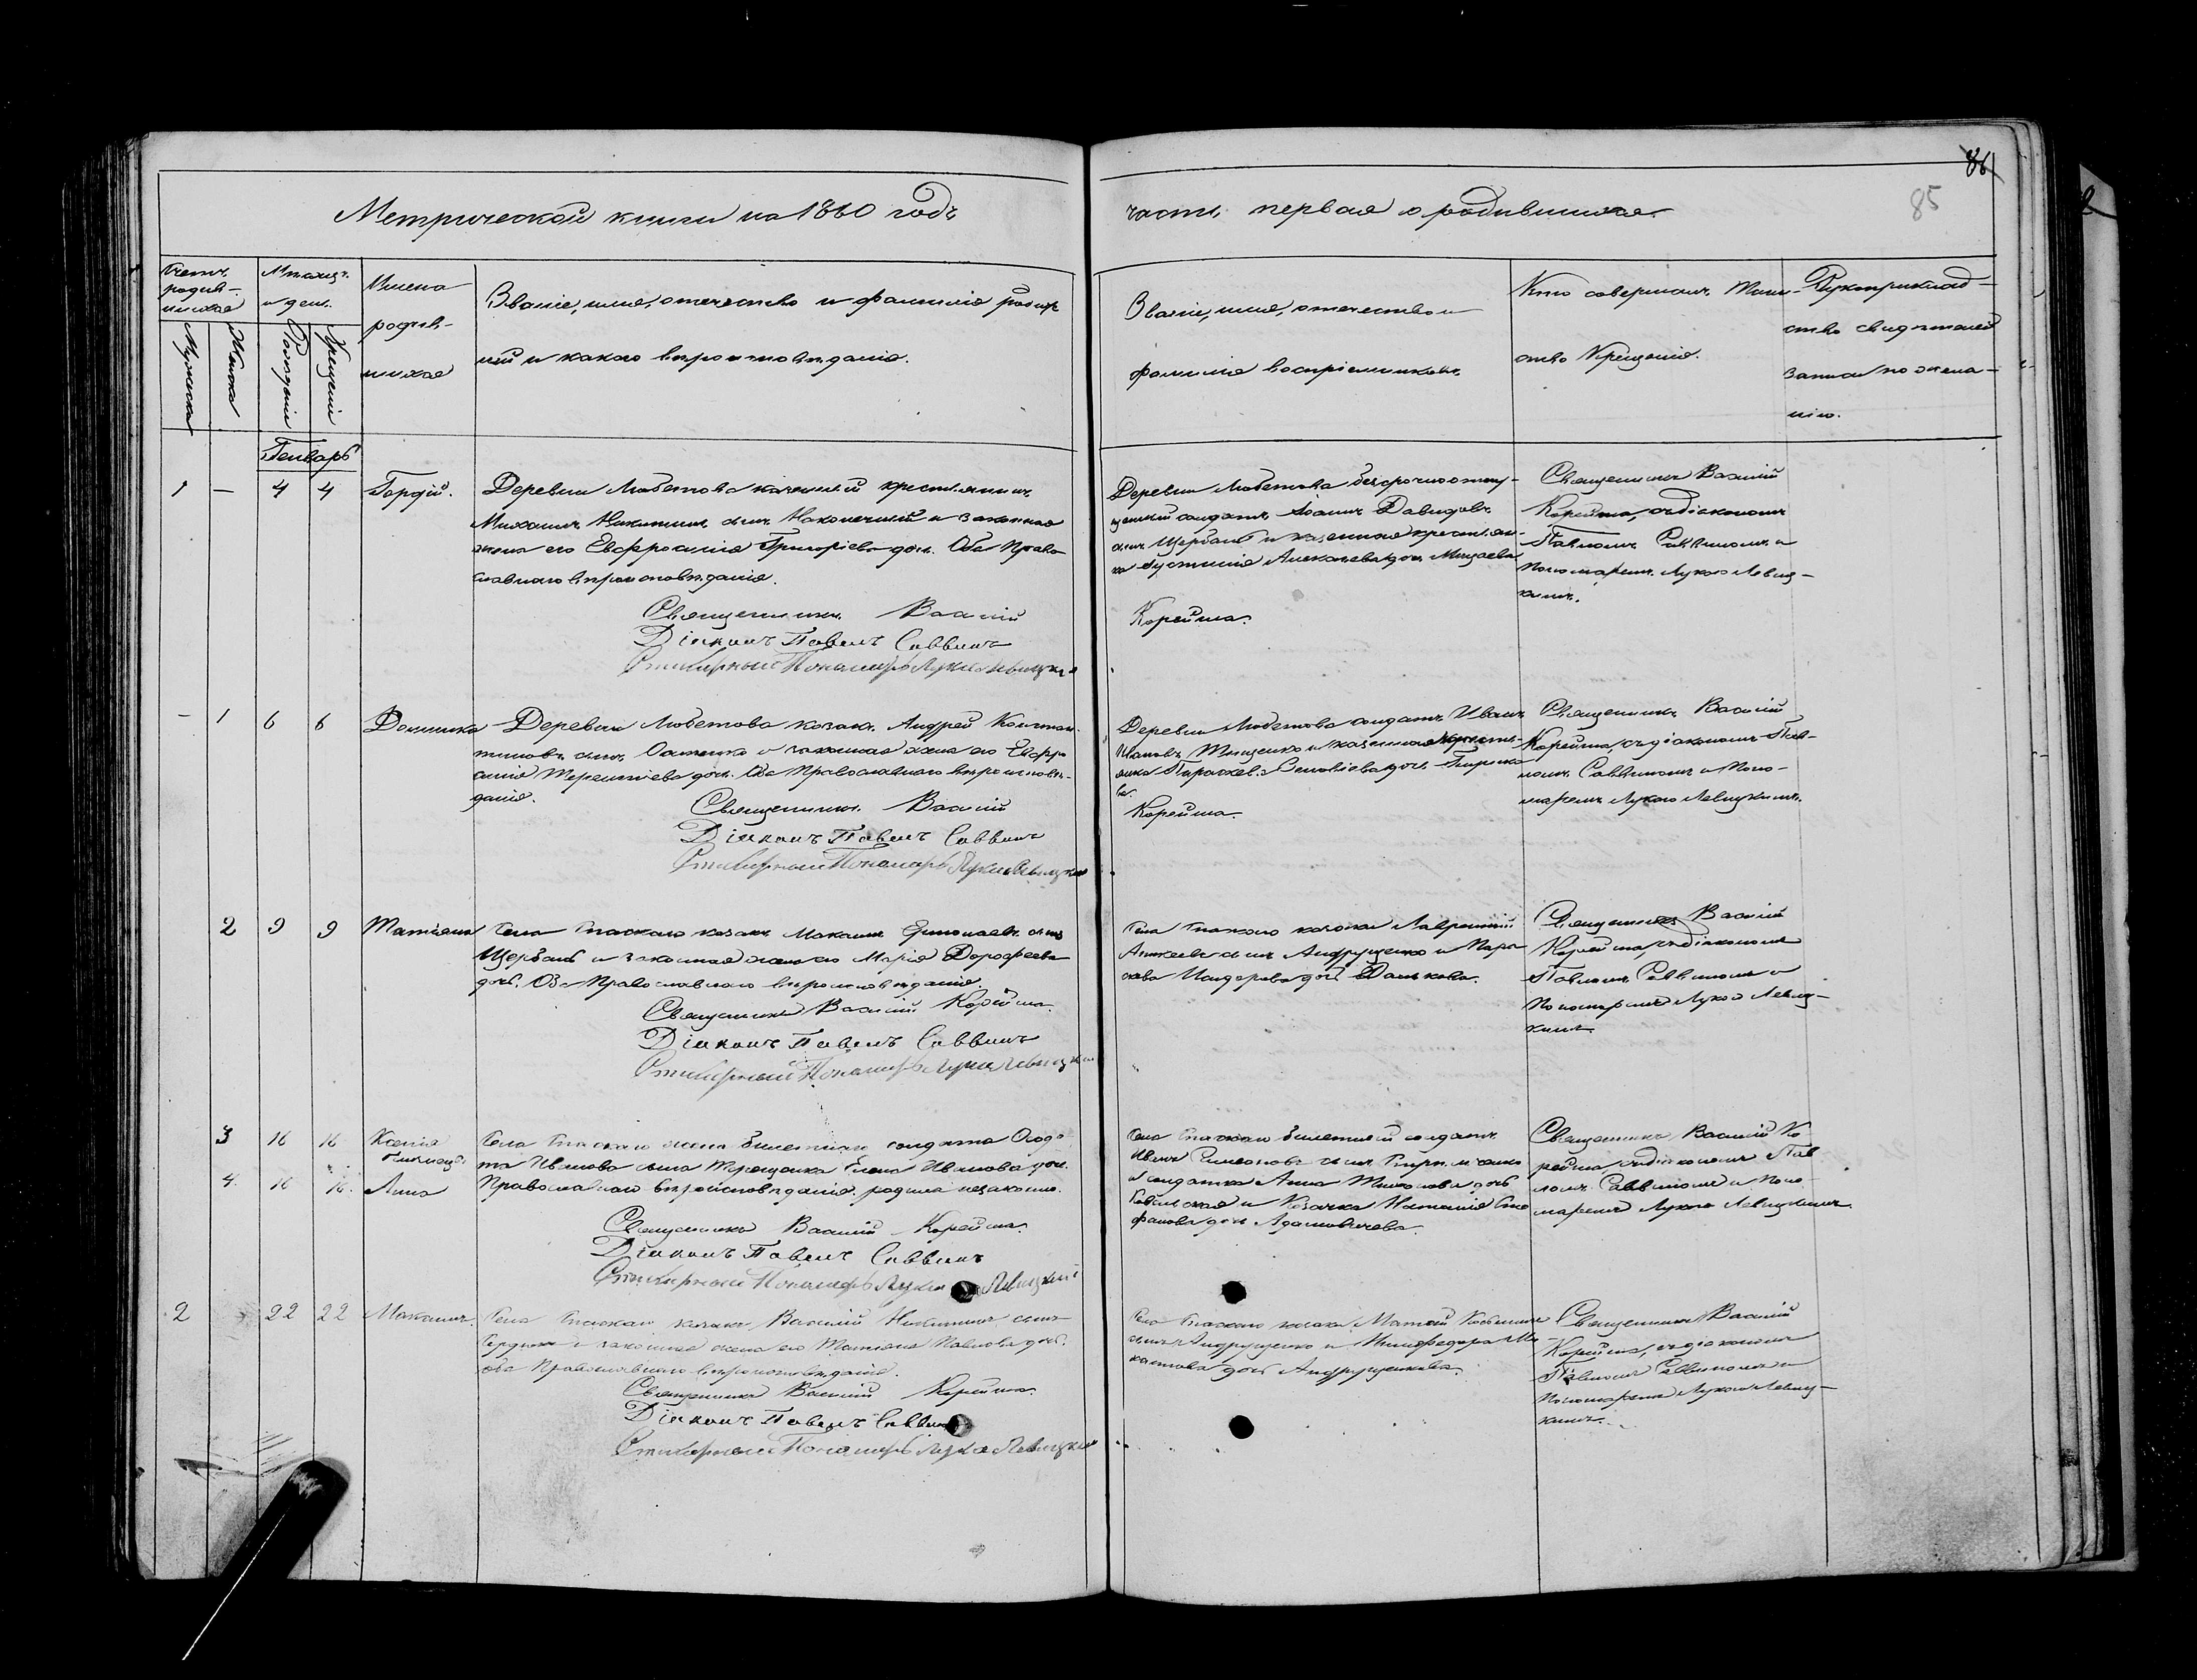 86
85
Метрической книги на 1860 годъ
часть первая о родившихся.
Счетъ родив-шихся
Мѣсяцъ и день.
Мужеска
Женска
Рожденія
Крещенія
Имена
родив-
шихся
Званіе, имя, отечество и фамилія родите
лей и какого вѣроисповѣданія.
Званіе, имя, отечество и
фамилія воспріемниковъ.
Кто совершалъ Таин-
ство Крещенія.
Рукоприклад-
ство свидѣтелей
записи по жела-
нію.
Генварь
1 — 4 4 Гордій.
Деревни Любетова казенный крестьянинъ
Михаилъ Никитинъ сынъ Наконечный и законная
жена его Евфросинія Григоріева дочь. Оба Право
славнаго вѣроисповѣданія.
Священникъ Василій
Діаконъ Павелъ Саввинъ
Стихарный Пономарь Лука Левицкій
Деревни Любетова безсрочноотпу-
щенный солдатъ Іоаннъ Давидовъ
сынъ Щербакъ и казенная крестьян-
ка Іустинія Алексѣева дочь
Корейша.
Священникъ Василій
Корейша, съ діакономъ
Павломъ Саввинымъ и
Пономаремъ Лукою Левиц-
кимъ.
— 1 6 6 Домника
Деревни Любетова козакъ Андрей Констан-
тиновъ сынъ и законная жена его Евфро
синія Терентіева дочь. Оба Православнаго вѣроисповѣ-
данія.
Священникъ Василій
Діаконъ Павелъ Саввинъ
Стихарный Пономарь Лука Левицкій
Деревни Любетова солдатъ Иванъ
Тищенко и казенная крестья-
янка Параскева дочь
ва.
Корейша.
Священникъ Василій
Корейша, съ діакономъ Пав-
ломъ Саввинымъ и Поно-
маремъ Лукою Левицкимъ.
2 9 9 Татіана
Села Спаскаго козакъ Максимъ сынъ
Щербакъ и законная жена его Марія Дорофеева
дочь. Оба Православнаго вѣроисповѣданія.
Священникъ Василій Корейша.
Діаконъ Павелъ Саввинъ
Стихарный Пономарь Лука Левицкій
Села Спаскаго козаки Лаврентій
сынъ Андрущенко и Пара
скева дочь
Священникъ Василій
Корейша, съ діакономъ
Павломъ Саввинымъ и
Пономаремъ Лукою Левиц-
кимъ.
3 16 16 Ксенія
близнецы
4 16 16. Анна
Села Спаскаго жена билетнаго солдата Ѳедо-
та Иванова сына Терещенка Елена Иванова дочь.
Православнаго вѣроисповѣданія. родила незаконно.
Священникъ Василій Корейша.
Діаконъ Павелъ Саввинъ
Стихарный Пономарь Лука Левицкій
Села Спаскаго билетный солдатъ
Иванъ сынъ
и солдатка Анна дочь
и Козачка Наталія Сте
фанова дочь Адамовичева.
Священникъ Василій Ко
рейша, съ діакономъ Пав
ломъ Саввинымъ и Поно-
маремъ Лукою Левицкимъ.
2 22 22 Максимъ.
Села Спаскаго козакъ Василій Никитинъ сынъ
Сердюкъ и законная жена его Татіана Павлова дочь.
оба Православнаго вѣроисповѣданія.
Священникъ Василій Корейша.
Діаконъ Павелъ Саввинъ
Стихарный Пономарь Лука Левицкій
Села Спаскаго козаки Матѳій
сынъ Андрущенко и
дочь Андрущенкова.
Священникъ Василій
Корейша, съ діакономъ
Павломъ Саввинымъ и
Пономаремъ Лукою Левиц-
кимъ.